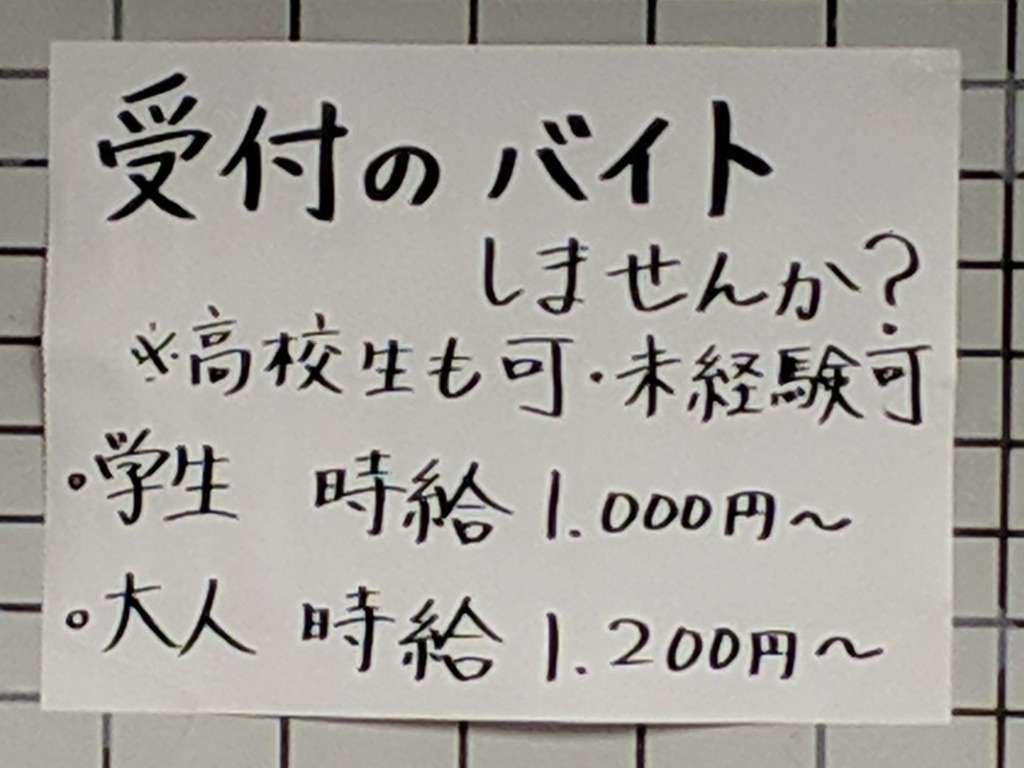 受付のバイト
しませんか?
※高校生も可・未経験可
・学生 時給 1.000円～
・大人 時給 1.200円～